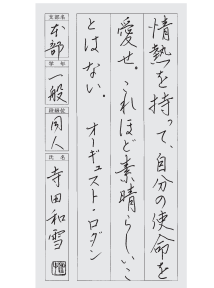 情熱を持って、自分の使命を
愛せ。これほど素晴らしいこ
とはない。
オーギュスト・ロダン
支部名
本部
学年
一般
段級位
同人
氏名
寺田和雪